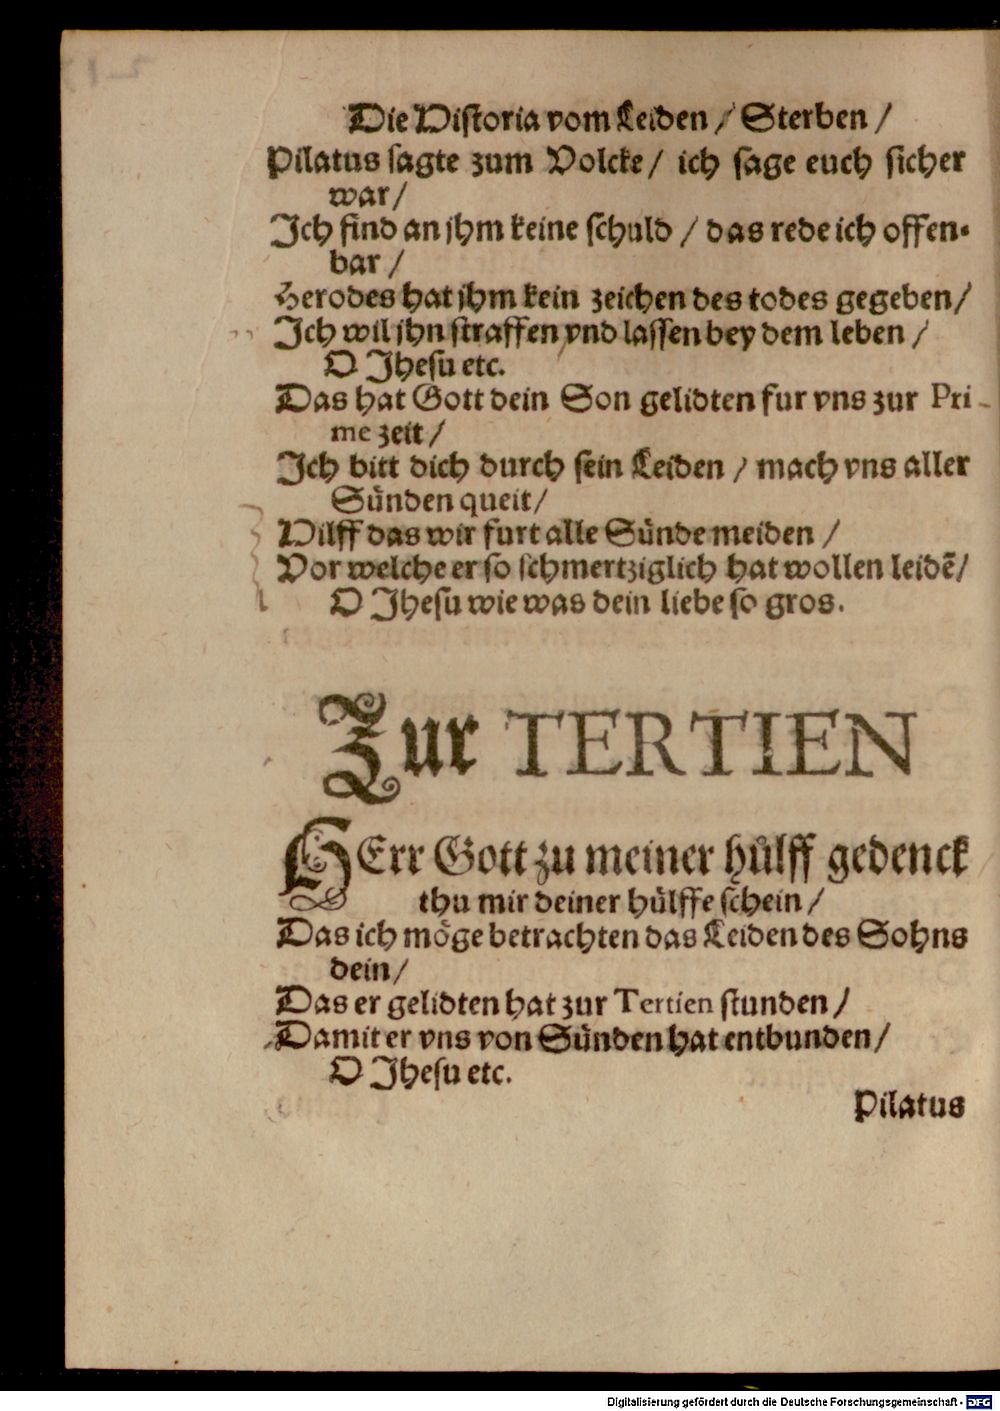 Die Historia vom Leiden / Sterben /
Pilatus sagte zum Volcke / ich sage euch sicher
war /
Ich find an jhm keine schuld / das rede ich offen-
bar /
Herodes hat jhm kein zeichen des todes gegeben /
Ich wil jhn straffen vnd lassen bey dem leben /
O Jhesu etc.
Das hat Gott dein Son gelidten fur vns zur Pri-
me zeit /
Ich bitt dich durch sein Leiden / mach vns aller
Sünden queit /
Hilff das wir furt alle Sünde meiden /
Vor welche er so schmertziglich hat wollen leidē /
O Jhesu wie was dein liebe so gros.
Zur TERTIEN
HErr Gott zu meiner hülff gedenck
thu mir deiner hülffe schein /
Das ich möge betrachten das Leiden des Sohns
dein /
Das er gelidten hat zur Tertien stunden /
Damit er vns von Sünden hat entbunden /
O Jhesu etc.
Pilatus
Digitalisierung gefördert durch die Deutsche Forschungsgemeinschaft - DFG